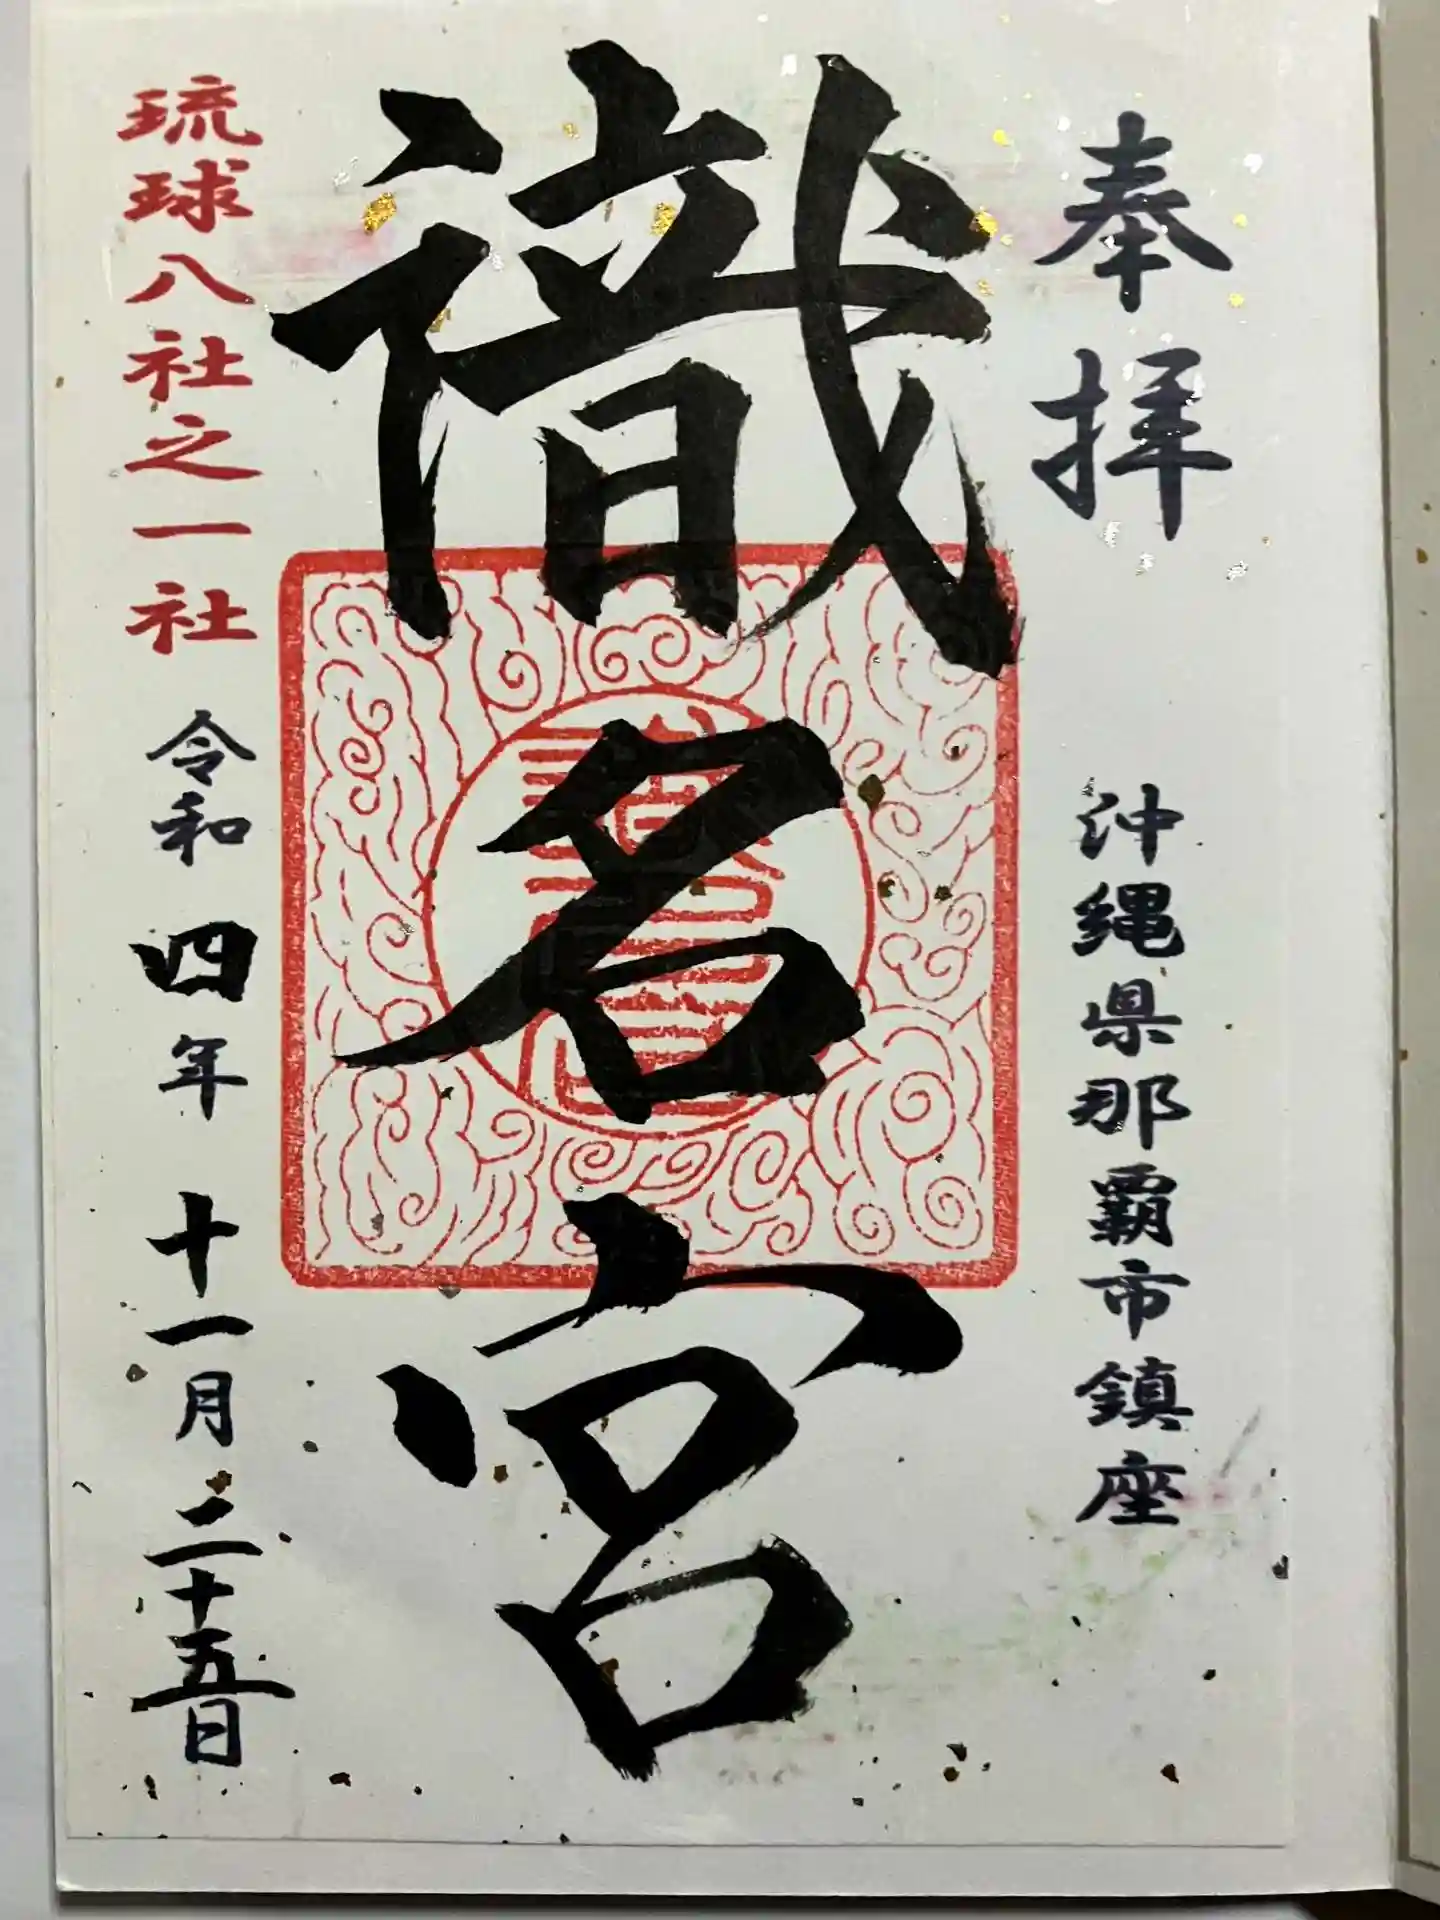 奉拝
沖縄県那覇市鎮座
識名宮
琉球八社之一社
令和四年十一月二十五日